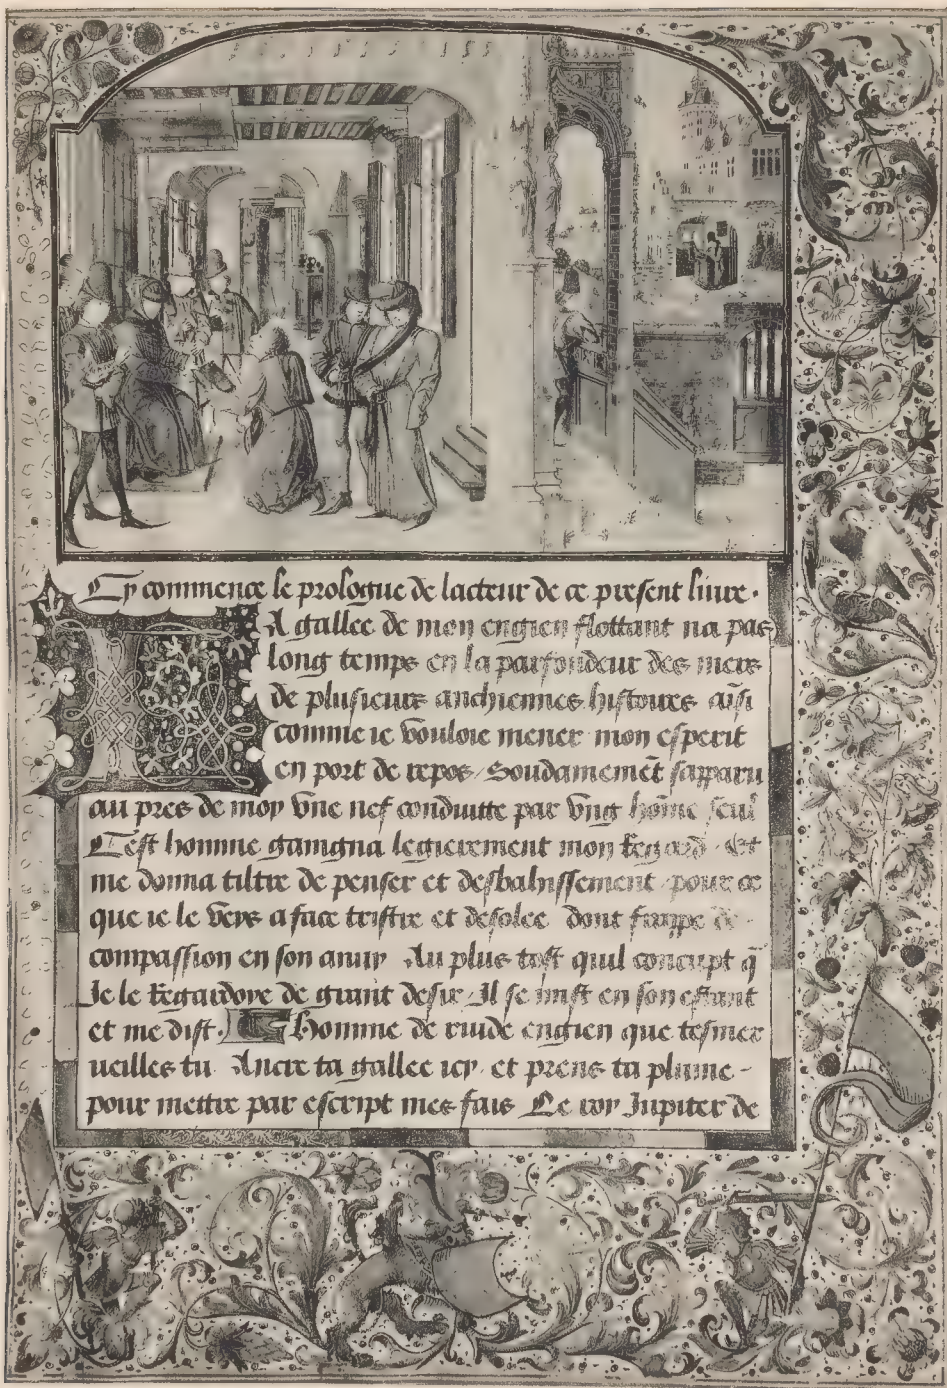 Cy commence le prologue de lacteur de ce present liure .
LA gallee de mon engien flottant na pas
long temps en la parfondeur des mers
de plusieurs anchiennes histoires aīsi
comme ie vouloie mener mon esperit
en port de repos / Soudainemēt sapparu
au pres de moy vne nef conduitte par vng hōme seul
Cest homme gaingna legierement mon Regard . Et
me donna tiltre de penser et desbahissement pour ce
que ie le veys a face tristre et desolee dont frappe de
compassion en son anuy Au plus tost quil concupt q̄
Je le Regardoye de grant desir Il se mist en son estant
et me dist . Homme de ruide engien que tesmer
ueilles tu Ancre ta gallee icy . et prens ta plume -
pour mettre par escript mes fais Le roy Jupiter de